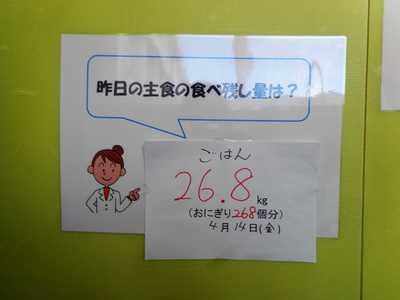 昨日の主食の食べ残し量は？
ごはん
26.8kg
(おにぎり268個分)
4月14日(金)